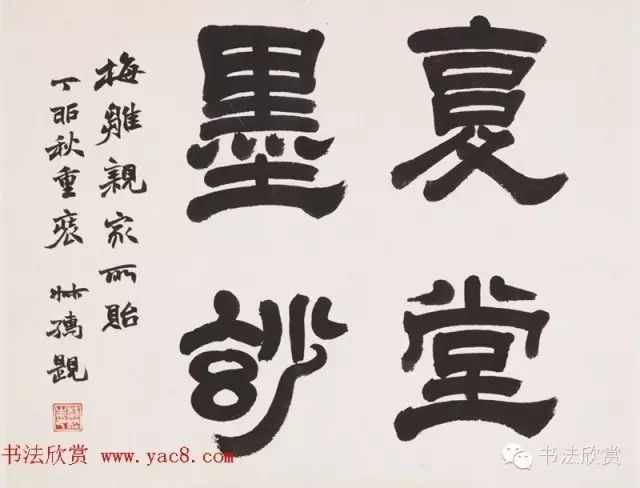 复堂
墨玅
梅雛親家所貽
丁卯秋重 叔孺題
书法欣赏 www.yac8.com
书法欣赏